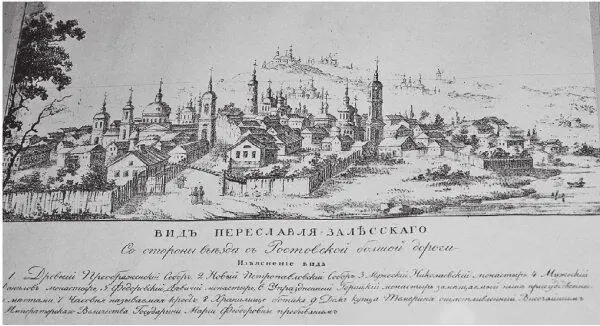 ВИДЪ ПЕРЕСЛАВЛЯ-ЗАЛѢССКАГО
Со стороны въѣзда съ Ростовской большой дороги
Изъясненіе вида
1 Древній Преображенскій Соборъ. 2 Новый Петропавловскій Соборъ 3 Мужской Николаевскій монастырь 4 Мужской
Даниловъ монастырь, 5 Ѳедоровскій Дѣвичій монастырь, 6 Упраздненный Горицкій монастырь
7 Часовня называемая крестъ 8 9 Домъ купца Темерина осчастливленный Высочайшимъ
Императорскаго Величества Государыни Маріи Ѳеодоровны пребываніемъ